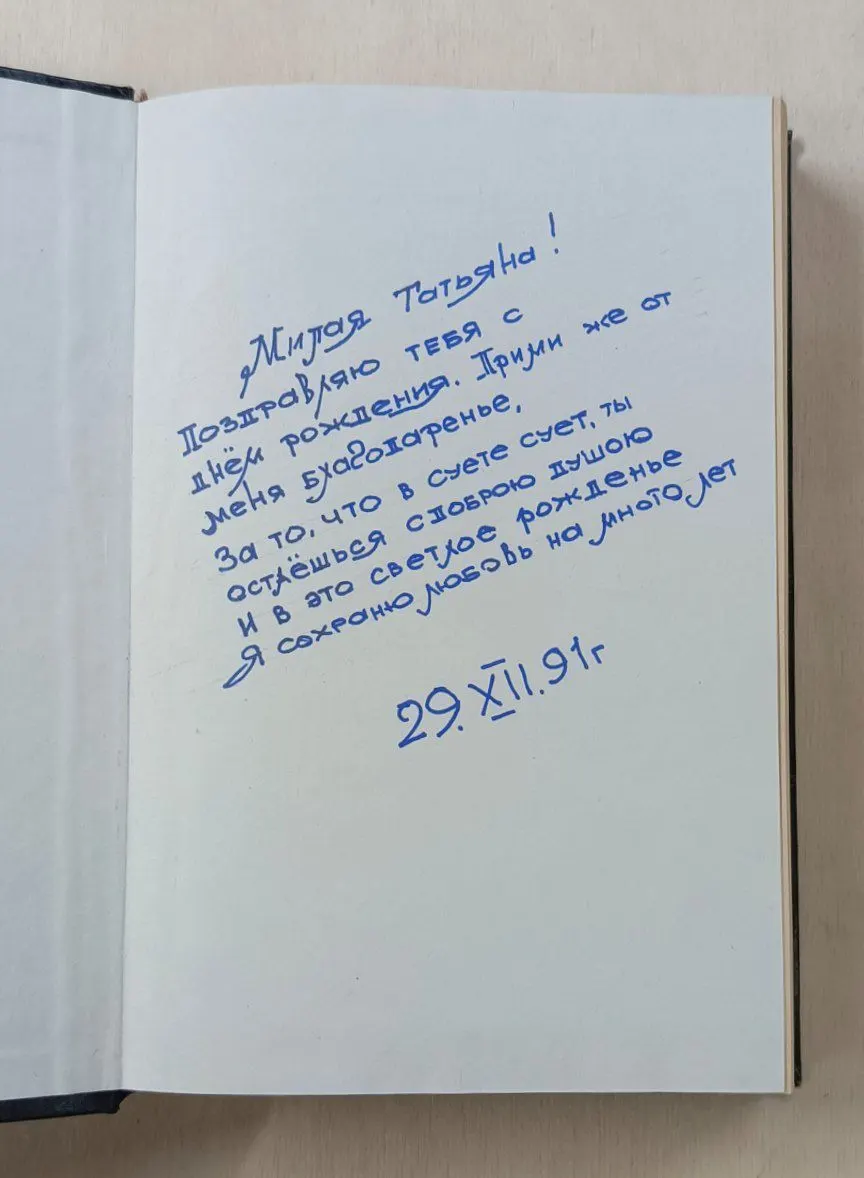 Милая Татьяна!
Поздравляю тебя с
днём рождения. Прими же от
меня благодаренье,
За то, что в суете сует, ты
остаёшься с доброю душою
И в это светлое рожденье
Я сохраню любовь на много лет
29.XII.91г